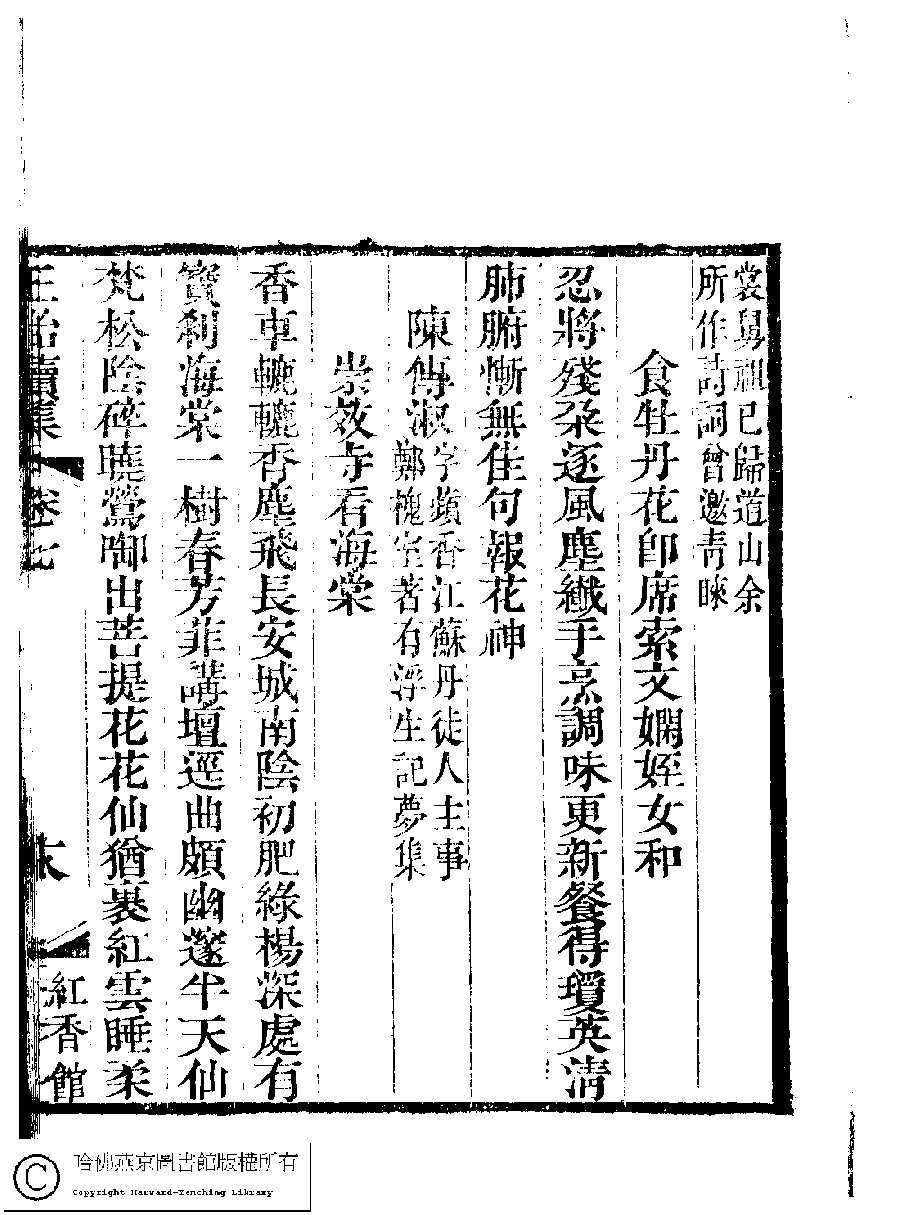 裳舅祖已歸道山余
所作詩詞曾邀青睞
食牡丹花卽席索文嫻姪女和
忍將殘朶逐風塵纖手烹調味更新餐得瓊英淸
肺腑慚無佳句報花神
陳傳淑字蘋香江蘇丹徒人主事
鄭槐室著有浮生記夢集
崇效寺看海棠
香車轆轆香塵飛長安城南陰初肥綠楊深處有
寶刹海棠一樹春芳菲講壇逕曲頗幽邃半天仙
梵松陰碎曉鶯啣出菩提花花仙猶裹紅雲睡柔
續集 卷七
紅香館
哈佛燕京圖書館版權所有
Copyright Harvard-Yenching Library